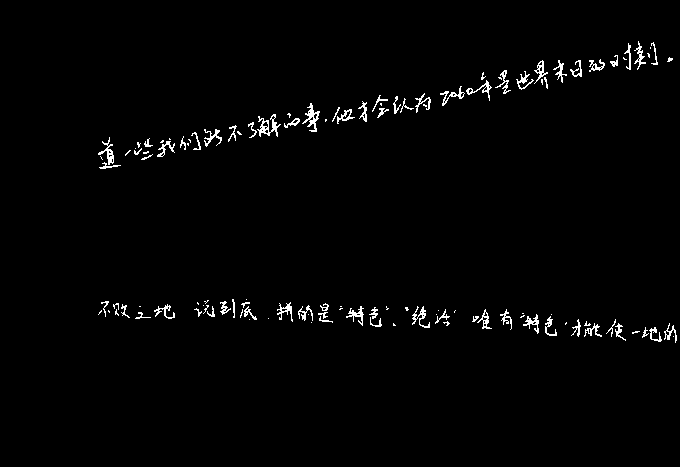 道一些我们所不了解的事，他才会认为2060年是世界末日的时刻。
不败之地 说到底，拼的是“特色”、“绝活” 唯有“特色”才能使一地的